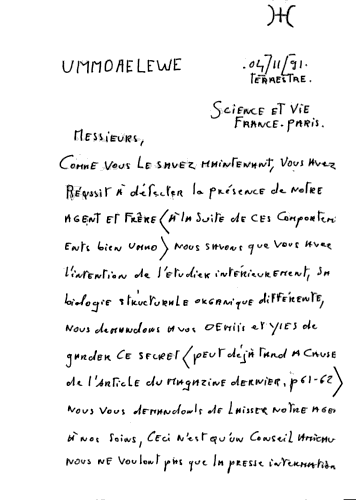 )+(
UMMOAELEWE
.04/11/91.
TERRESTRE.
SCIENCE ET VIE
FRANCE-PARIS.
MESSIEURS,
COMME VOUS LE SAVEZ MAINTENANT, VOUS AVEZ
RÉUSSIT A détecter la présence de NOTRE
AGENT ET FRÈRE (A la Suite de CES COMPORTEM
ENTS bien UMMO) NOUS SAVONS que VOUS AVEZ
l'intention de l'étudier intérieurement, SA
biologie structurale organique différente,
NOUS demandons A VOS OEMIIS et YIES de
garder CE SECRET (PEUT déjà tard A CAUSE
de l'Article du Magazine dernier, p61-62)
NOUS VOUS demandons de LAISSER NOTRE AGEN
A NOS Soins, CECI N'est qu'un Conseil AMICAL
NOUS NE Voulons pas que la presse internation